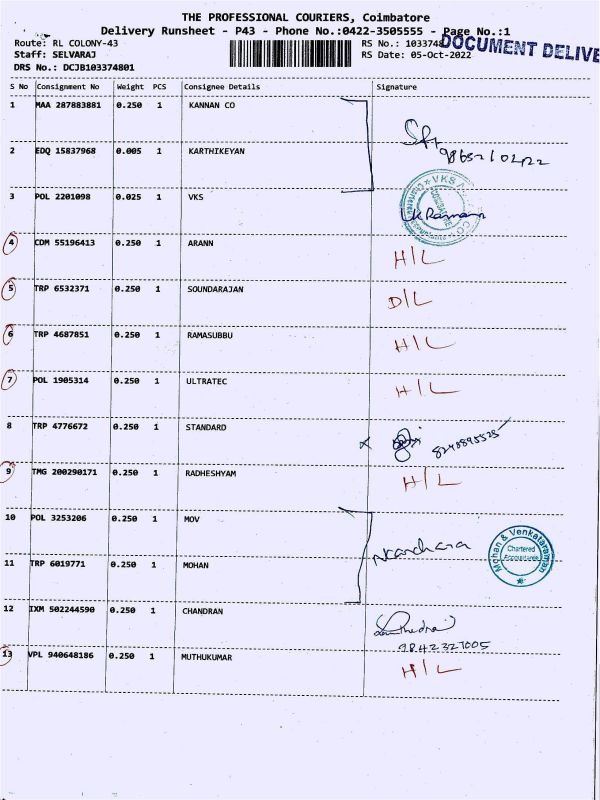 THE PROFESSIONAL COURIERS, Coimbatore
Delivery Runsheet - P43 - Phone No.:0422-3505555 - Page No.:1
Route: RL COLONY-43 RS No.: 1033748 DOCUMENT DELIVE
Staff: SELVARAJ RS Date: 05-Oct-2022
DRS No.: DCJB103374801
S No Consignment No Weight PCS Consignee Details Signature
1 MAA 287883881 0.250 1 KANNAN CO
2 EDQ 15837968 0.005 1 KARTHIKEYAN
3 POL 2201098 0.025 1 VKS
VKS
4 CDM 55196413 0.250 1 ARANN H/L
5 TRP 6532371 0.250 1 SOUNDARAJAN D/L
6 TRP 4687851 0.250 1 RAMASUBBU H/L
7 POL 1905314 0.250 1 ULTRATEC H/L
8 TRP 4776672 0.250 1 STANDARD
9 TMG 200290171 0.250 1 RADHESHYAM H/L
10 POL 3253206 0.250 1 MOV
Mohan & Venkataraman
Chartered
Accountants
11 TRP 6019771 0.250 1 MOHAN
12 IXM 502244590 0.250 1 CHANDRAN
9842327005
13 VPL 940648186 0.250 1 MUTHUKUMAR H/L